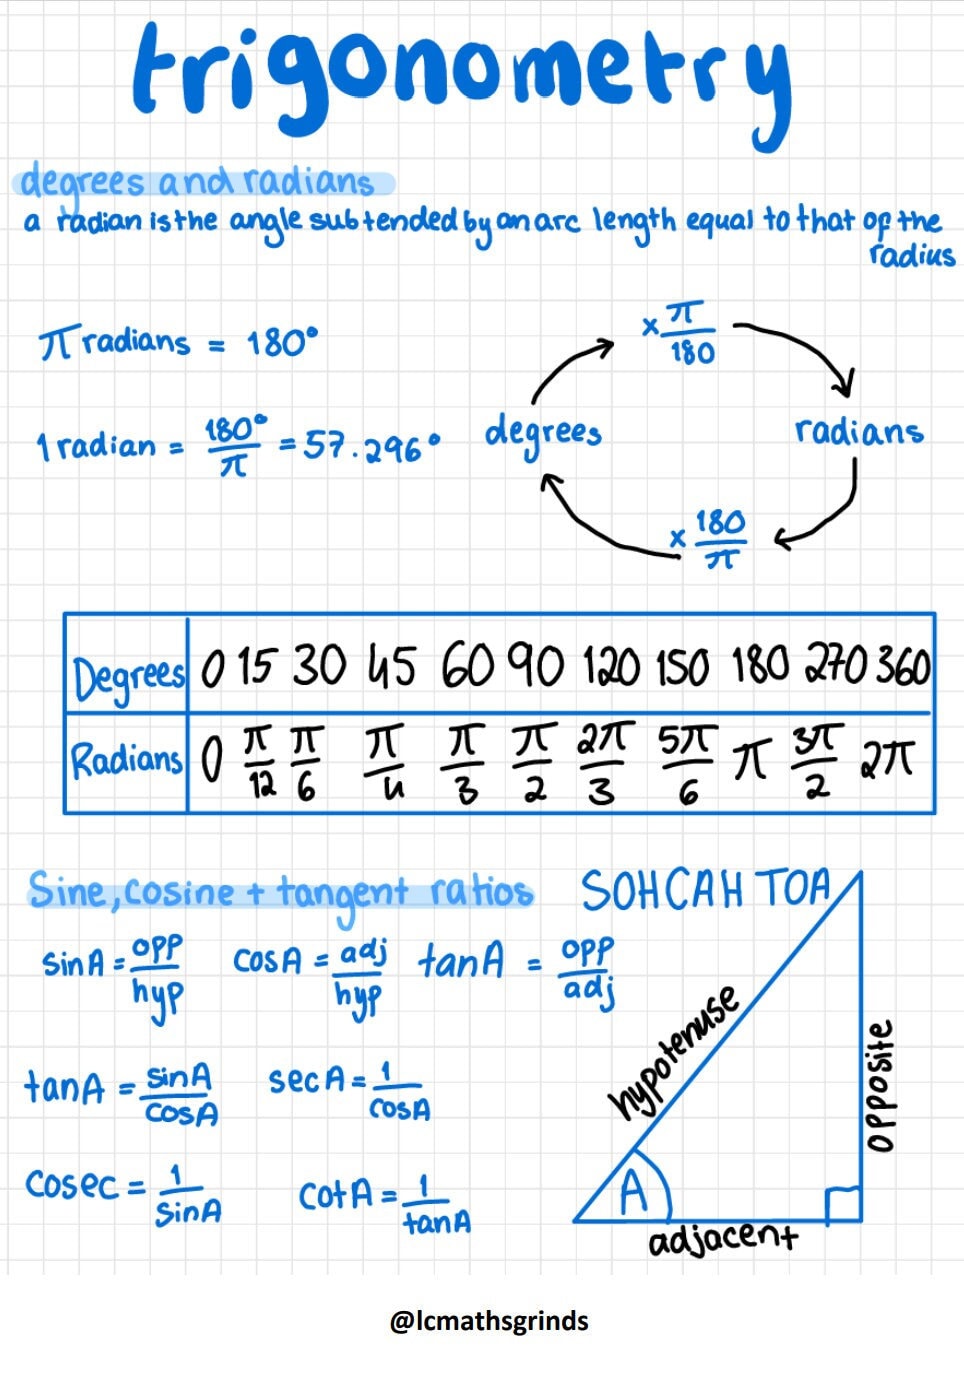 trigonometry
degrees and radians
a radian is the angle subtended by an arc length equal to that of the
radius
π radians = 180°
× π/180
1 radian = 180°/π = 57.296°
degrees
radians
× 180/π
Degrees 0 15 30 45 60 90 120 150 180 270 360
Radians 0 π/12 π/6 π/4 π/3 π/2 2π/3 5π/6 π 3π/2 2π
Sine, cosine + tangent ratios
SOHCAH TOA
sinA = opp/hyp cosA = adj/hyp tanA = opp/adj
tanA = sinA/cosA secA = 1/cosA
cosec = 1/sinA cotA = 1/tanA
hypotenuse
opposite
A
adjacent
@lcmathsgrinds